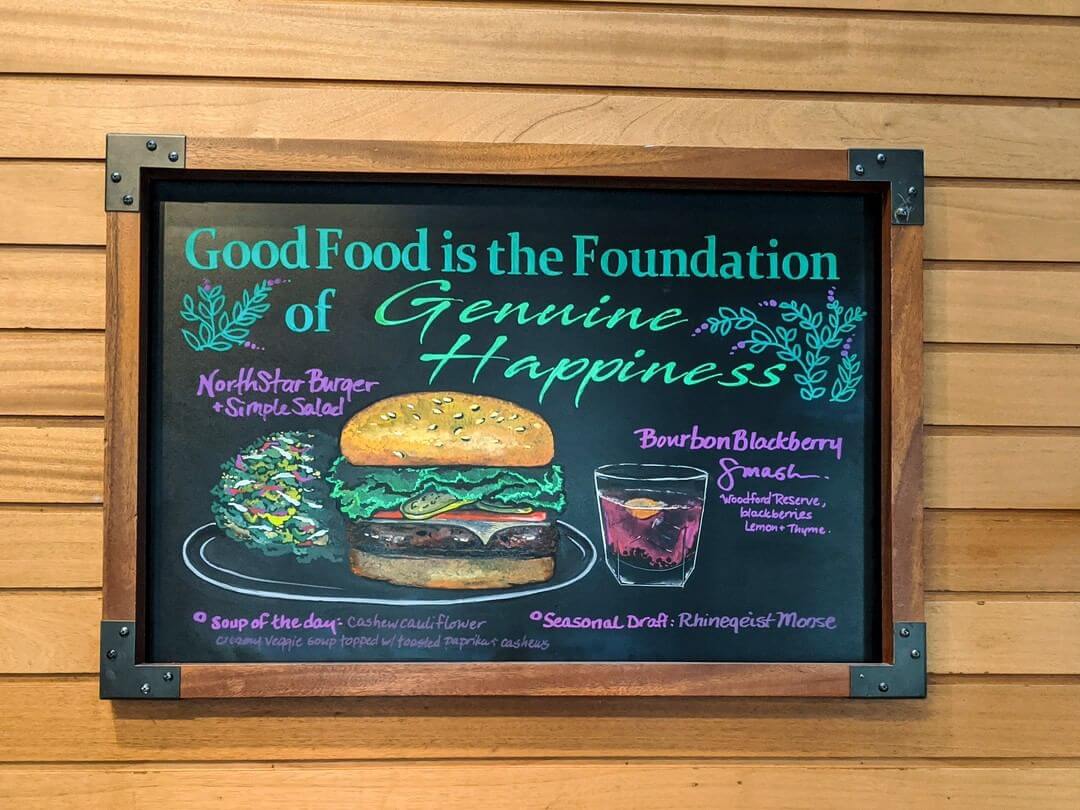 Good Food is the Foundation
of Genuine
Happiness
NorthStar Burger
+ Simple Salad
Bourbon Blackberry
Smash.
Woodford Reserve,
blackberries
Lemon + Thyme.
Soup of the day: cashew cauliflower
creamy veggie soup topped w/ toasted paprika cashews
Seasonal Draft: Rhinegeist Moose